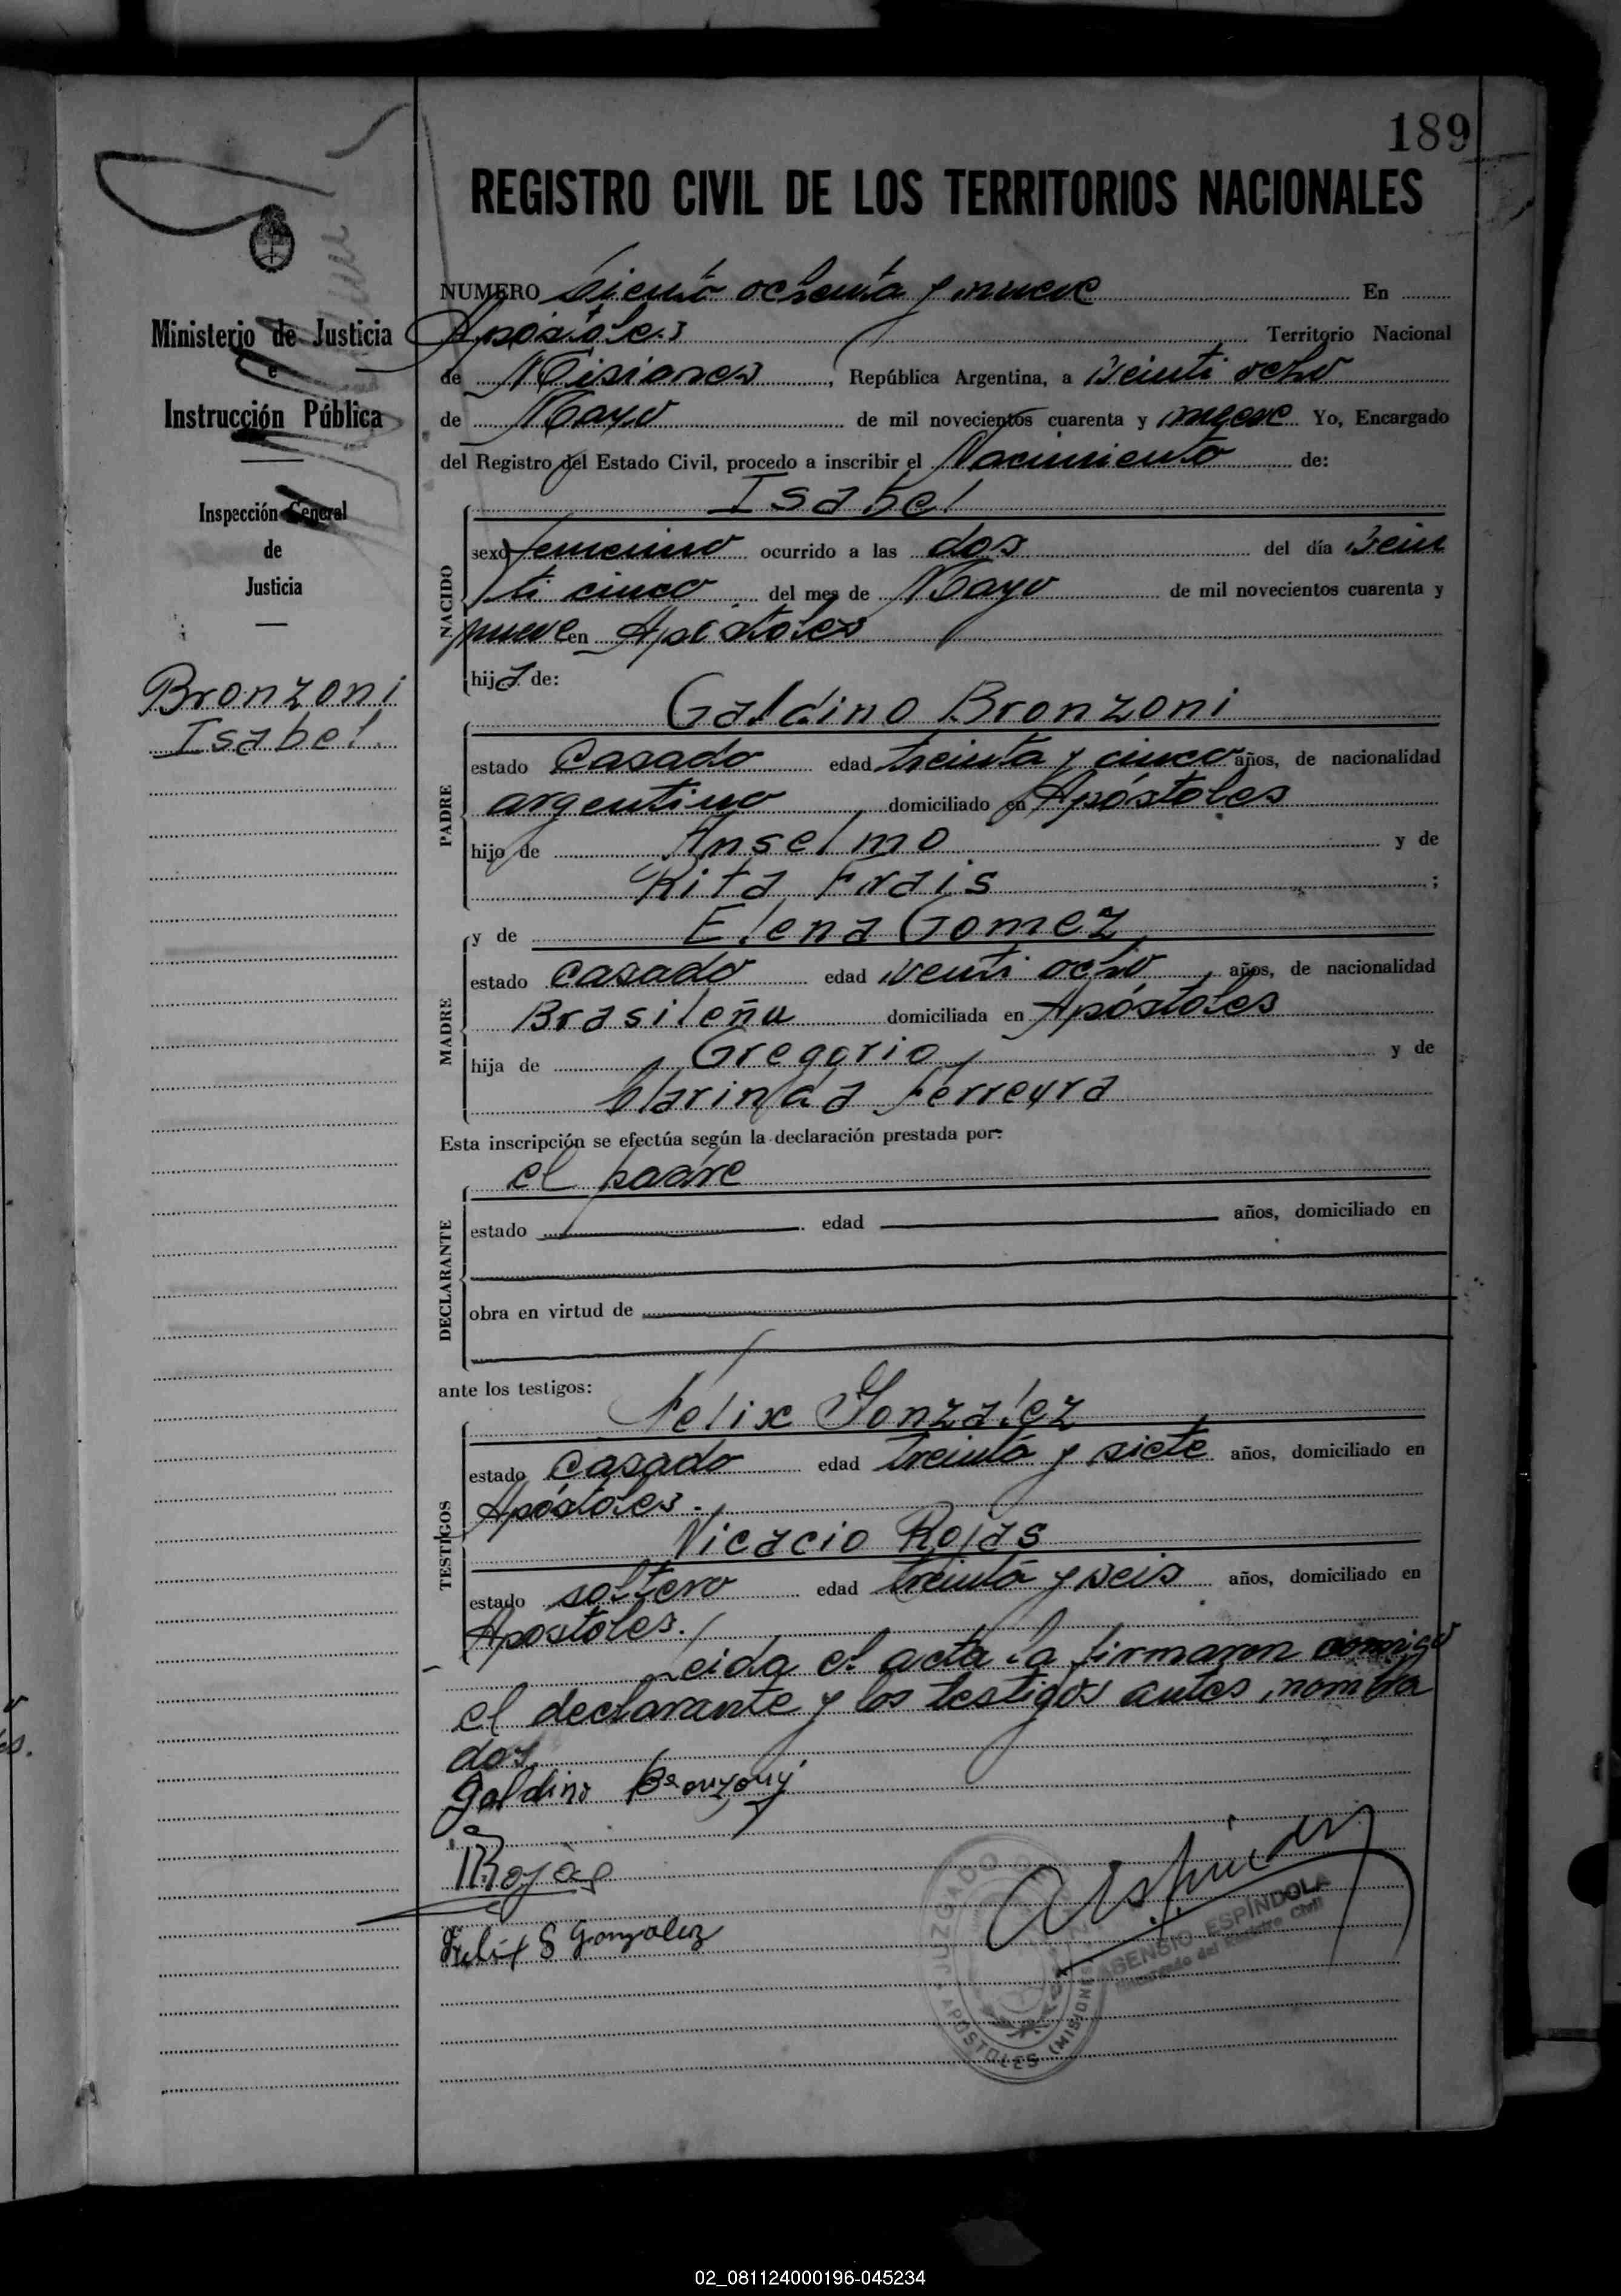 189
REGISTRO CIVIL DE LOS TERRITORIOS NACIONALES
Ministerio de Justicia
e
Instrucción Pública
Inspección General
de
Justicia
Bronzoni
Isabel.
NUMERO Siento ochenta y nueve En
Apóstoles Territorio Nacional
de Misiones, República Argentina, a veinti ocho
de Mayo de mil novecientos cuarenta y nueve Yo, Encargado
del Registro del Estado Civil, procedo a inscribir el Nacimiento de:
Isabel
NACIDO
sexo femenino ocurrido a las dos del día vein
ti cinco del mes de Mayo de mil novecientos cuarenta y
nueve en Apóstoles
hija de:
Galdino Bronzoni
PADRE
estado Casado edad treinta y cinco años, de nacionalidad
argentino domiciliado en Apóstoles
hijo de Anselmo y de
Rita Frais;
y de Elena Gomez
MADRE
estado casado edad venti ocho años, de nacionalidad
Brasileña domiciliada en Apóstoles
hija de Gregorio y de
Ferreyra
Esta inscripción se efectúa según la declaración prestada por:
el padre
DECLARANTE
estado edad años, domiciliado en
obra en virtud de
ante los testigos:
Felix Gonzalez
TESTIGOS
estado casado edad treinta y siete años, domiciliado en
Apóstoles.
Nicacio Rojas
estado soltero edad treinta y seis años, domiciliado en
Apostoles.
Leida el acta la firmaron conmigo
el declarante y los testigos antes nombra
dos.
Galdino Bronzoni
Rojas
Felix S Gonzalez
JUZGADO
APOSTOLES (MISIONES)
ASENSIO ESPÍNDOLA
Encargado del Registro Civil
02_081124000196-045234